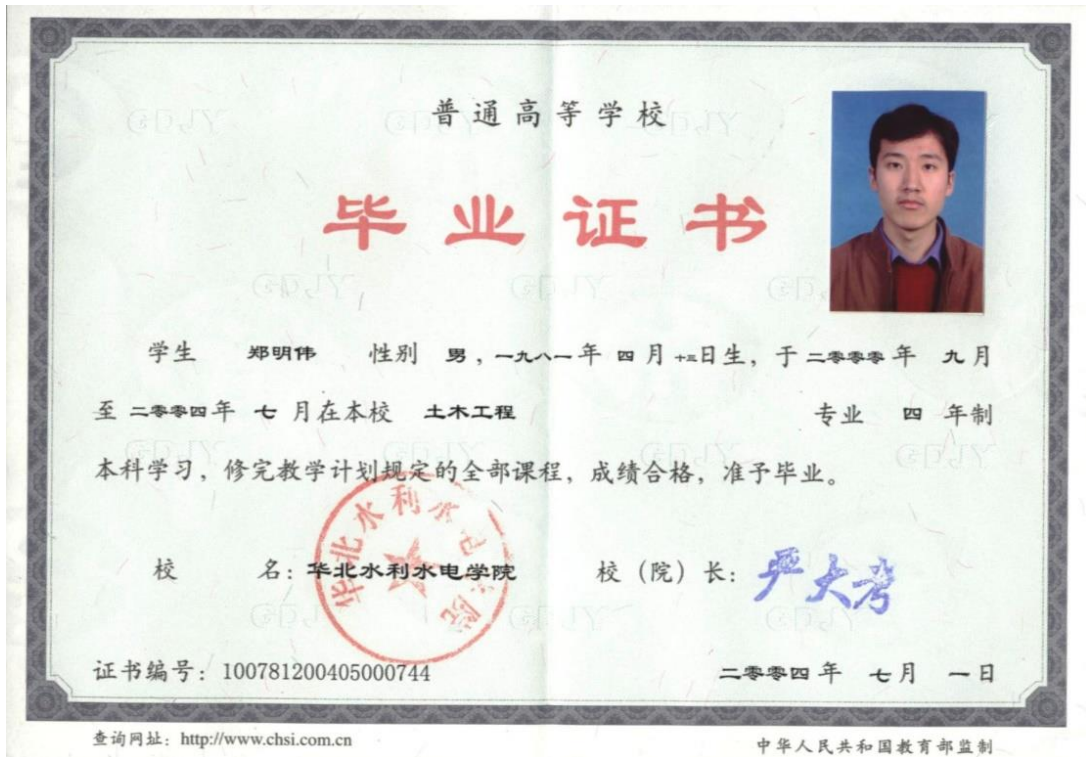 普通高等学校
毕业证书
学生 郑明伟 性别 男，一九八一年 四月 十三日生，于 二零零零 年 九月
至 二零零四年 七 月在本校 土木工程 专业 四 年制
本科学习，修完教学计划规定的全部课程，成绩合格，准予毕业。
华北水利水电学院
校 名：华北水利水电学院 校（院）长：严大考
证书编号：100781200405000744 二零零四 年 七月 一日
查询网址：http://www.chsi.com.cn 中华人民共和国教育部监制